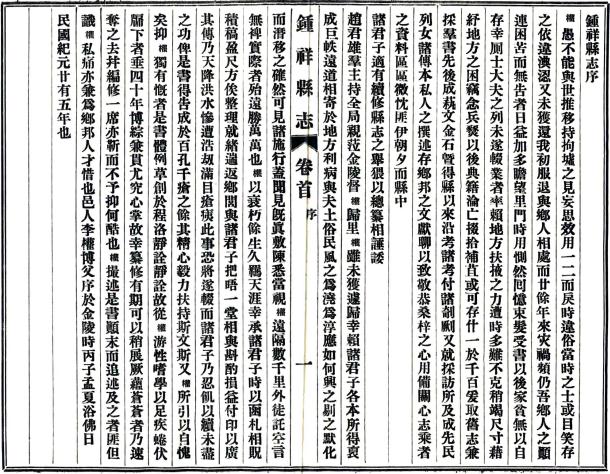 鍾祥縣志序
權愚不能與世推移持拘墟之見妄思效用一二而戾時違俗當時之士或目笑存
之依違淟涊又未獲還我初服退與鄉人相處而廿餘年來灾禍頻仍吾鄉人之顚
連困苦而無吿者日益加多瞻望里門時用惻然囘憶束髮受書以後家貧無以自
存幸廁士大夫之列未遂輟業者率賴地方扶掖之力遭時多難不克稍竭尺寸藉
紓地方之困竊念兵燹以後典籍淪亡掇拾補苴或可存什一於千百爰取舊志兼
採羣書先後成藝文金石曁得縣以來沿考諸考付諸剞劂又就採訪所及成先民
列女諸傳本私人之撰述存鄉邦之文獻聊以致敬恭桑梓之心用備關心志乘者
之資料區區微忱匪伊朝夕而縣中
諸君子適有續修縣志之舉猥以總纂相諈諉
趙君雄羣主持全局親蒞金陵督權歸里權雖未獲遽歸幸賴諸君子各本所得裒
成巨帙遠道相寄於地方利病與夫土俗民風之爲澆爲淳應如何興之剔之默化
鍾祥縣志 卷首 序 一
而潛移之確然可見諸施行蓋聞見旣眞敷陳悉當視權遠隔數千里外徒託空言
無裨實際者殆遠勝萬萬也權以衰朽餘生久羈天涯幸承諸君子時以函札相貺
積稿盈尺方俟整理就緖遄返鄉閭與諸君子把晤一堂相與斟酌損益付印以廣
其傳乃天降洪水慘遭浩刼滿目瘡痍此事恐將遂輟而諸君子乃忍飢以續未盡
之功俾是書得吿成於百孔千瘡之餘其精心毅力扶持斯文斯又權所引以自愧
矣抑權獨有慨者是書體例草創於程洛靜詮靜詮故從權游性嗜學以足疾蜷伏
牖下者垂四十年博綜兼貫尤究心掌故幸纂修有期可以稍展厥蘊蒼蒼者乃速
奪之去幷編修一席亦靳而不予抑何酷也權撮述是書顚末而追述及之者匪但
識權私痛亦兼爲鄉邦人才惜也邑人李權博父序於金陵時丙子孟夏浴佛日
民國紀元廿有五年也